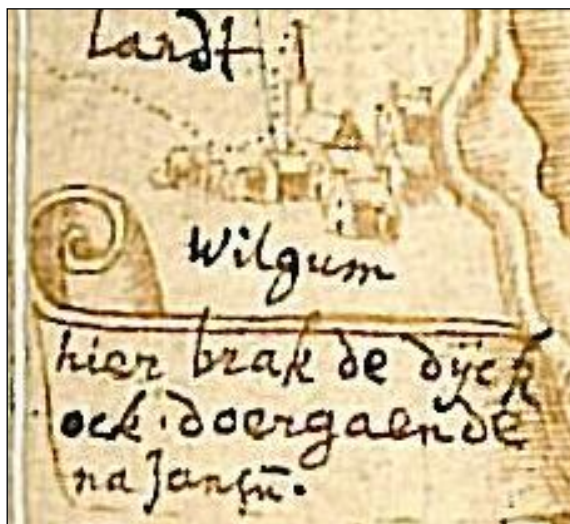 Landt
Wilgum
hier brak de dÿck
ock doergaende
na Jansũ.